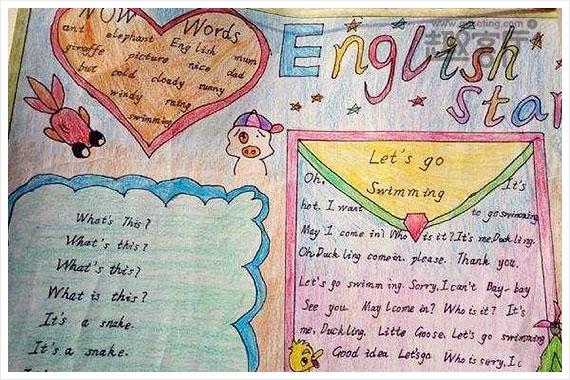 NOW Words
ant elephant English mum
giraffe picture nice dad
but cold cloudy sunny
windy
swimming
English
Star
What's This?
What's this?
What's this?
What is this?
It's a snake.
It's a snake.
Let's go
Swimming
Oh, It's
hot. I want to go swimming
May I come in? Who is it? It's me, Duckling.
Oh, Duckling come in, please. Thank you.
Let's go swimming. Sorry, I can't Bay-bay
See you. May I come in? Who is it? It's
me, Duckling. Little Goose. Let's go swimming
Good idea Let's go. Who is